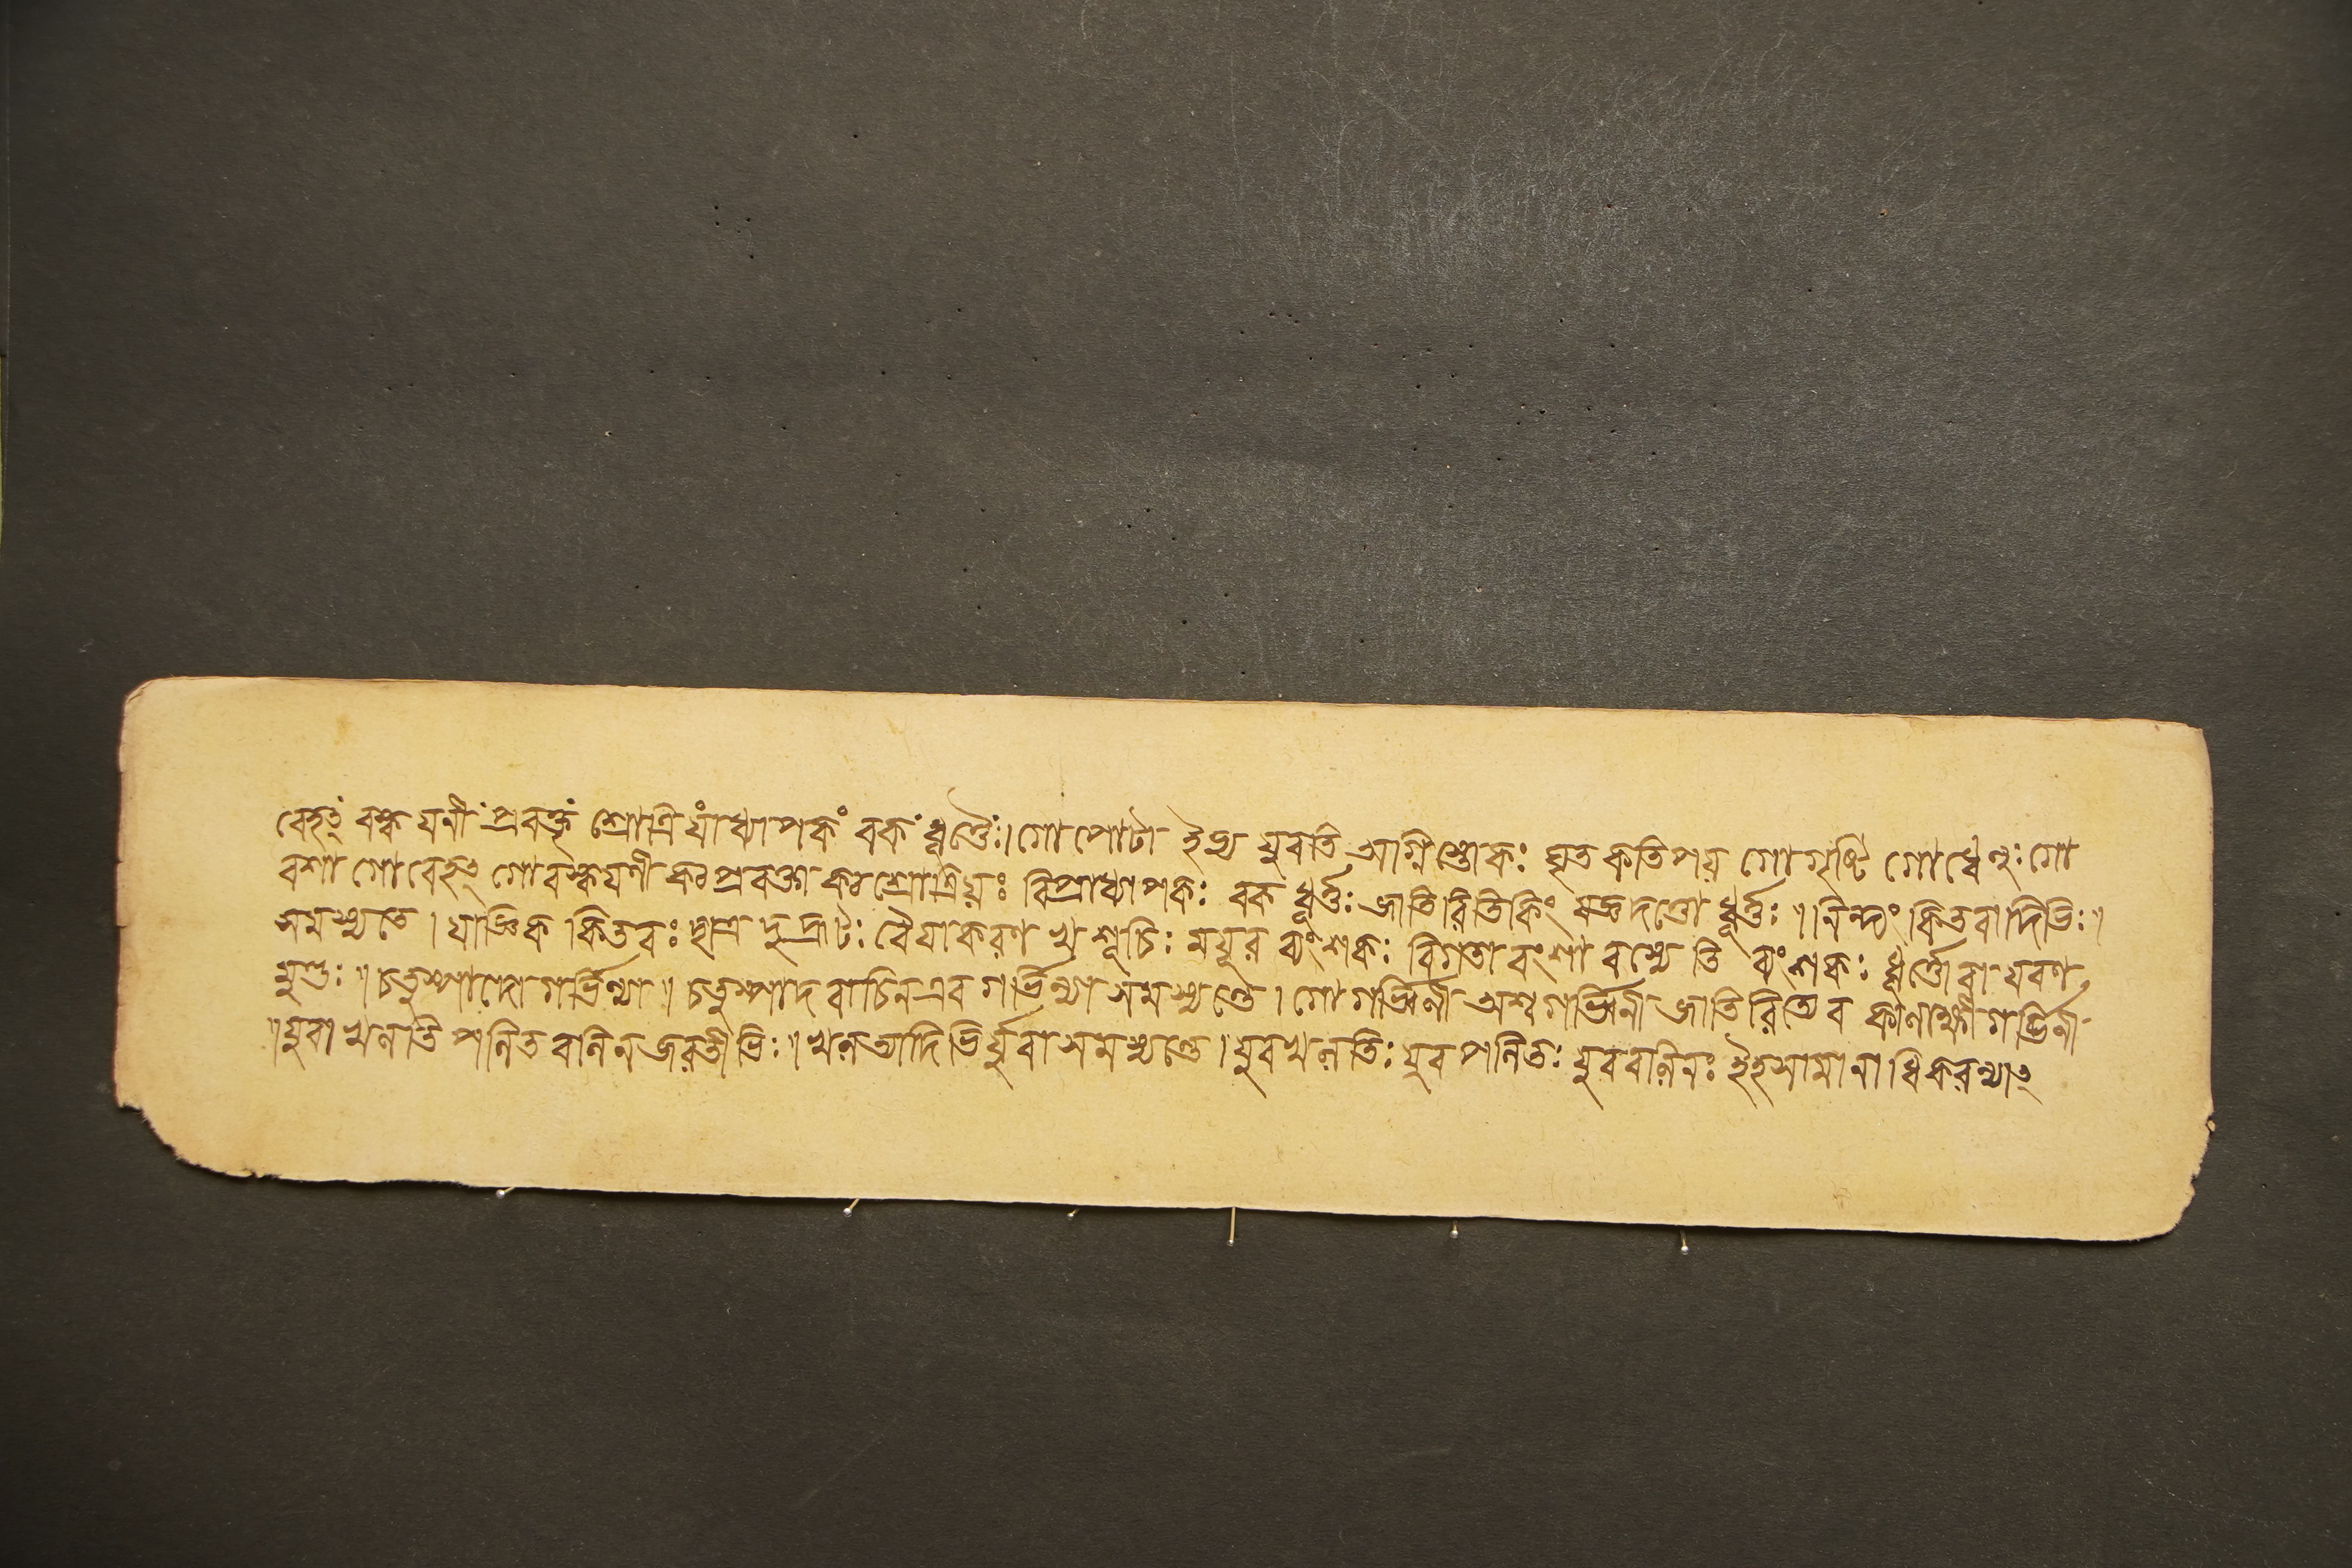 বেহৎ বস্ক যনী প্রবক্তৃ শ্রোত্রি যাধ্যাপক বক ধূর্ত্তৈঃ। গো পোটা ইভ্য যুবতি আগ্নিস্তোকঃ ঘৃত কতিপয় গো গৃষ্টি গো ধেনুঃ গো
বশা গো বেহৎ গো বস্কযনী কঠ প্রবক্তা কঠ শ্রোত্রিয়ঃ বিপ্রাধ্যাপকঃ বক ধূর্ত্তঃ জাতিরিতি কিং দেবদত্তো ধূর্ত্তঃ ॥ নিন্দ্যং কিতবাদিভিঃ।
সমস্যতে। যাজ্ঞিক কিতবঃ ছাত্র দুর্দ্রূটঃ বৈযাকরণ খ শূচিঃ ময়ূর ব্যংশকঃ বিগতা বংশা বস্যে তি ব্যংশকঃ ধূর্ত্তো বা যবণ
মুণ্ডঃ ॥ চতুষ্পাদো গর্ভিন্যা ॥ চতুষ্পাদ বাচিন এব গর্ভিন্যা সমস্যন্তে। গো গর্ভিনী অশ্ব গর্ভিনী জাতি রিত্যেব কালাক্ষী গর্ভিনী
॥ যুবা খলতি পলিত বলিন জরতীভিঃ ॥ খলত্যাদিভির্যুবা সমস্যন্তে। যুব খলতিঃ যুব পলিতঃ যুব বলিনঃ ইহ সামানাধিকরন্যাৎ